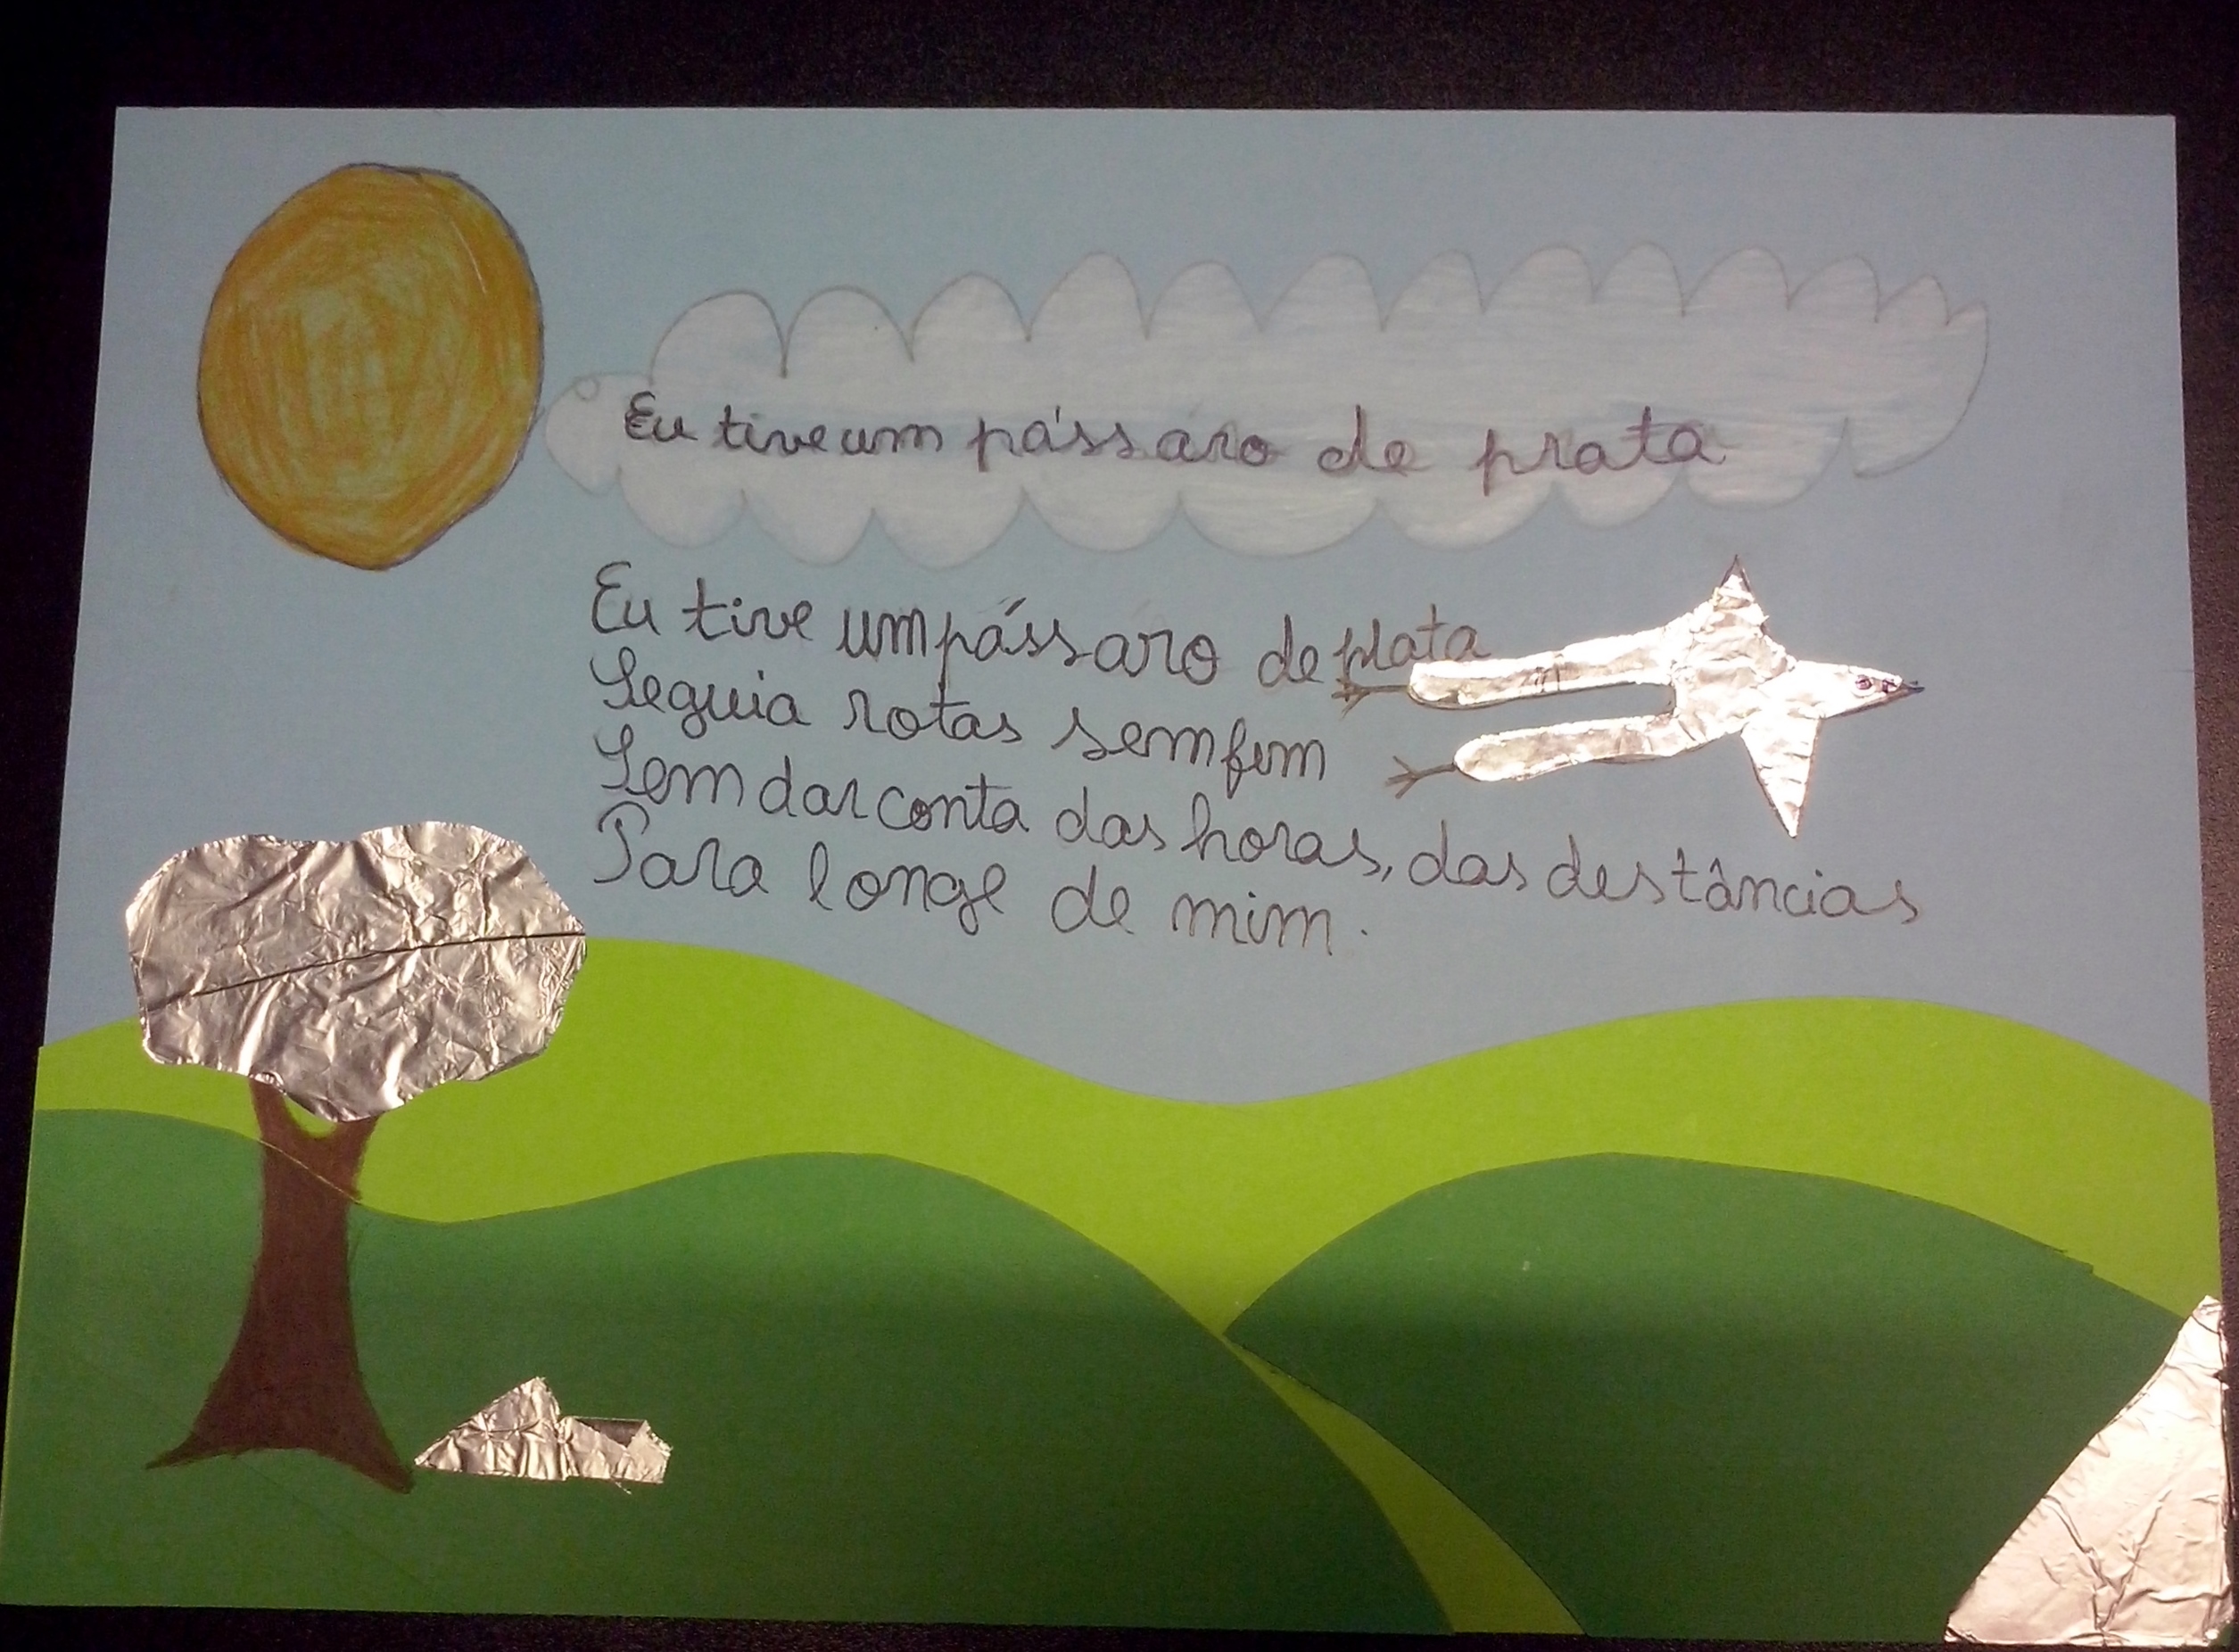 Eu tive um pássaro de prata
Eu tive um pássaro de prata
Seguia rotas sem fim
Sem dar conta das horas, das destâncias
Para longe de mim.